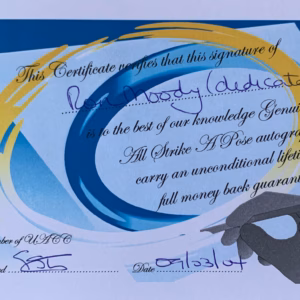 This Certificate verifies that this signature of
Ron Moody (dedicate
is to the best of our knowledge Genui
All Strike A Pose autogr
carry an unconditional lifeti
full money back guaran
ber of UACC
Date 09/03/04